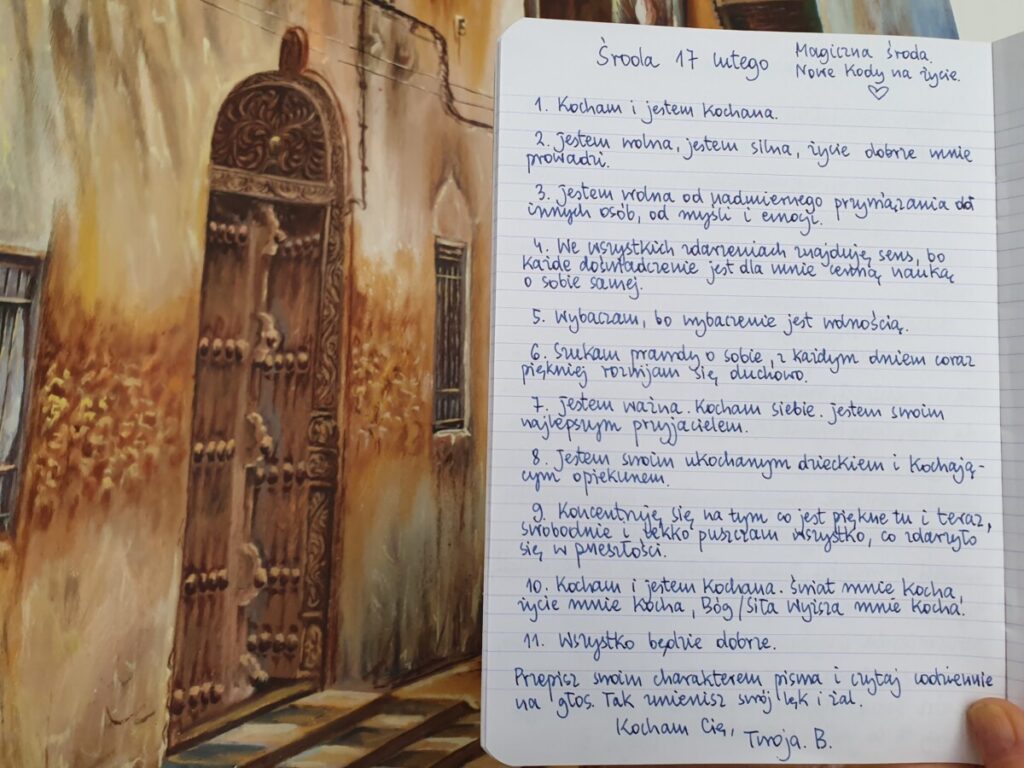 Środa 17 lutego
Magiczna Środa.
Nowe Kody na życie.
1. Kocham i jestem Kochana.
2. jestem wolna, jestem silna, życie dobrze mnie
prowadzi.
3. jestem wolna od nadmiernego przywiązania do
innych osób, od myśli i emocji.
4. We wszystkich zdarzeniach znajduję sens, bo
każde doświadczenie jest dla mnie cenną nauką
o sobie samej.
5. Wybaczam, bo wybaczenie jest wolnością.
6. Szukam prawdy o sobie, z każdym dniem coraz
piękniej rozwijam się duchowo.
7. jestem ważna. Kocham siebie. jestem swoim
najlepszym przyjacielem.
8. Jestem swoim ukochanym dzieckiem i Kochają-
cym opiekunem.
9. Koncentruję się na tym co jest piękne tu i teraz,
swobodnie i lekko puszczam wszystko, co zdarzyło
się w przeszłości.
10. Kocham i jestem Kochana. Świat mnie Kocha,
życie mnie Kocha, Bóg/Siła Wyższa mnie Kocha.
11. Wszystko będzie dobrze.
Przepisz swoim charakterem pisma i czytaj codziennie
na głos. Tak zmienisz swój lęk i żal.
Kocham Cię,
Twoja. B.